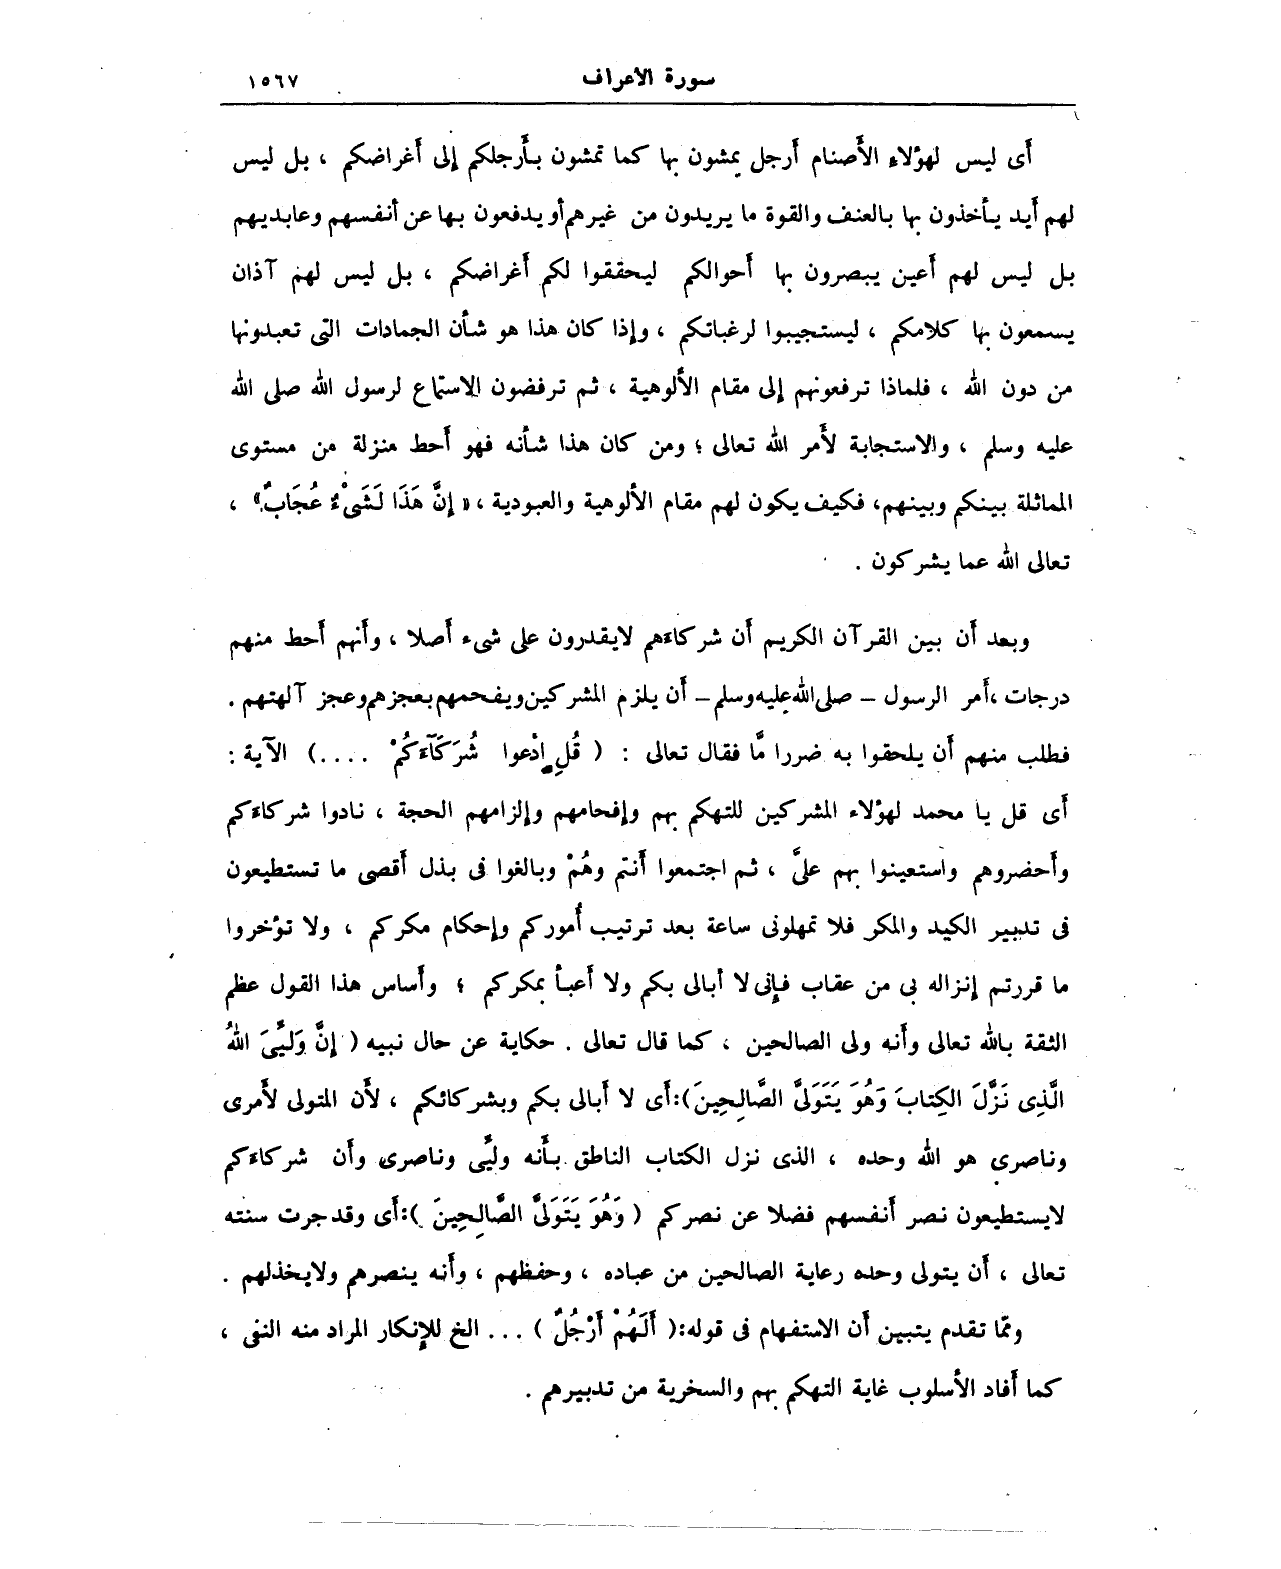 سورة الأعراف ١٥٦٧
أى ليس لهؤلاء الأصنام أرجل يمشون بها كما تمشون بأرجلكم إلى أغراضكم ، بل ليس
لهم أيد يأخذون بها بالعنف والقوة ما يريدون من غيرهم أو يدفعون بها عن أنفسهم وعابديهم
بل ليس لهم أعين يبصرون بها أحوالكم ليحققوا لكم أغراضكم ، بل ليس لهم آذان
يسمعون بها كلامكم ، ليستجيبوا لرغباتكم ، وإذا كان هذا هو شأن الجمادات التى تعبدونها
من دون الله ، فلماذا ترفعونهم إلى مقام الألوهية ، ثم ترفضون الاستماع لرسول الله صلى الله
عليه وسلم ، والاستجابة لأمر الله تعالى ؛ ومن كان هذا شأنه فهو أحط منزلة من مستوى
المماثلة بينكم وبينهم، فكيف يكون لهم مقام الألوهية والعبودية ، « إِنَّ هَذَا لَشَىْءٌ عُجَابٌ » ،
تعالى الله عما يشركون .
وبعد أن بين القرآن الكريم أن شركاءهم لايقدرون على شىء أصلا ، وأنهم أحط منهم
درجات ، أمر الرسول – صلى الله عليه وسلم – أن يلزم المشركين ويفحمهم بعجزهم وعجز آلهتهم .
فطلب منهم أن يلحقوا به ضررا مَّا فقال تعالى : ( قُلِ ادْعوا شُرَكَآءَكُمْ .... ) الآية :
أى قل يا محمد لهؤلاء المشركين للتهكم بهم وإفحامهم وإلزامهم الحجة ، نادوا شركاءكم
وأحضروهم واستعينوا بهم علىَّ ، ثم اجتمعوا أنتم وهُمْ وبالغوا فى بذل أقصى ما تستطيعون
فى تدبير الكيد والمكر فلا تمهلونى ساعة بعد ترتيب أُموركم وإحكام مكركم ، ولا تؤخروا
ما قررتم إنزاله بى من عقاب فإنى لا أبالى بكم ولا أعبأ بمكركم ؛ وأساس هذا القول عظم
الثقة بالله تعالى وأنه ولى الصالحين ، كما قال تعالى . حكاية عن حال نبيه ( إِنَّ وَلِيِّىَ اللهُ
الَّذِى نَزَّلَ الكِتابَ وَهُوَ يَتَوَلَّى الصَّالِحِينَ ): أى لا أبالى بكم وبشركائكم ، لأن المتولى لأمرى
وناصرى هو الله وحده ، الذى نزل الكتاب الناطق بأنه وليِّى وناصرى وأن شركاءكم
لايستطيعون نصر أنفسهم فضلا عن نصركم ( وَهُوَ يَتَوَلَّى الصَّالِحِينَ ): أى وقد جرت سنته
تعالى ، أن يتولى وحده رعاية الصالحين من عباده ، وحفظهم ، وأنه ينصرهم ولايخذلهم .
وممّا تقدم يتبين أن الاستفهام فى قوله: ( أَلَهُمْ أَرْجُلٌ ) ... الخ للإنكار المراد منه النفى ،
كما أفاد الأسلوب غاية التهكم بهم والسخرية من تدبيرهم .